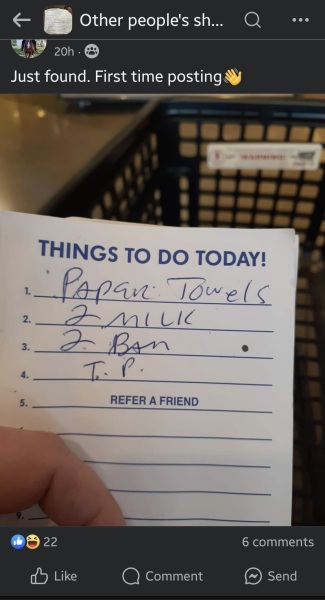 Other people's sh...
20h ·
Just found. First time posting👋
WARNING!
THINGS TO DO TODAY!
1. Papar Towels
2. 2 MILK
3. 2 Ban
4. T. P.
5. REFER A FRIEND
9.
22
6 comments
Like
Comment
Send